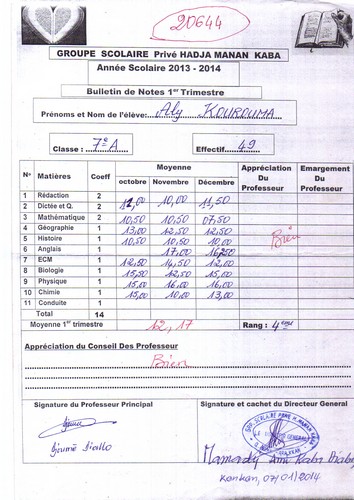 20644
GROUPE SCOLAIRE Privé HADJA MANAN KABA
Année Scolaire 2013 - 2014
Bulletin de Notes 1er Trimestre
Prénoms et Nom de l'élève: Aly KOUROUMA
Classe : 7e A Effectif 49
N° Matières Coeff Moyenne Appréciation Du Professeur Emargement Du Professeur
octobre Novembre Décembre
1 Rédaction 2
2 Dictée et Q. 2 11,00 10,00 11,50
3 Mathématique 2 10,50 10,50 07,50
4 Géographie 1 13,00 12,50 12,50
5 Histoire 1 10,50 10,50 10,00 Bien
6 Anglais 1 17,00 16,50
7 ECM 1 12,50 14,50 12,00
8 Biologie 1 15,50 12,50 15,00
9 Physique 1 15,00 16,00 16,00
10 Chimie 1 15,00 10,00 13,00
11 Conduite 1
Total 14
Moyenne 1er trimestre 12,17 Rang : 4eme
Appréciation du Conseil Des Professeur
Bien
Signature du Professeur Principal
Signature et cachet du Directeur General
Diallo
Mamady Kaba
Kankan, 07/01/2014